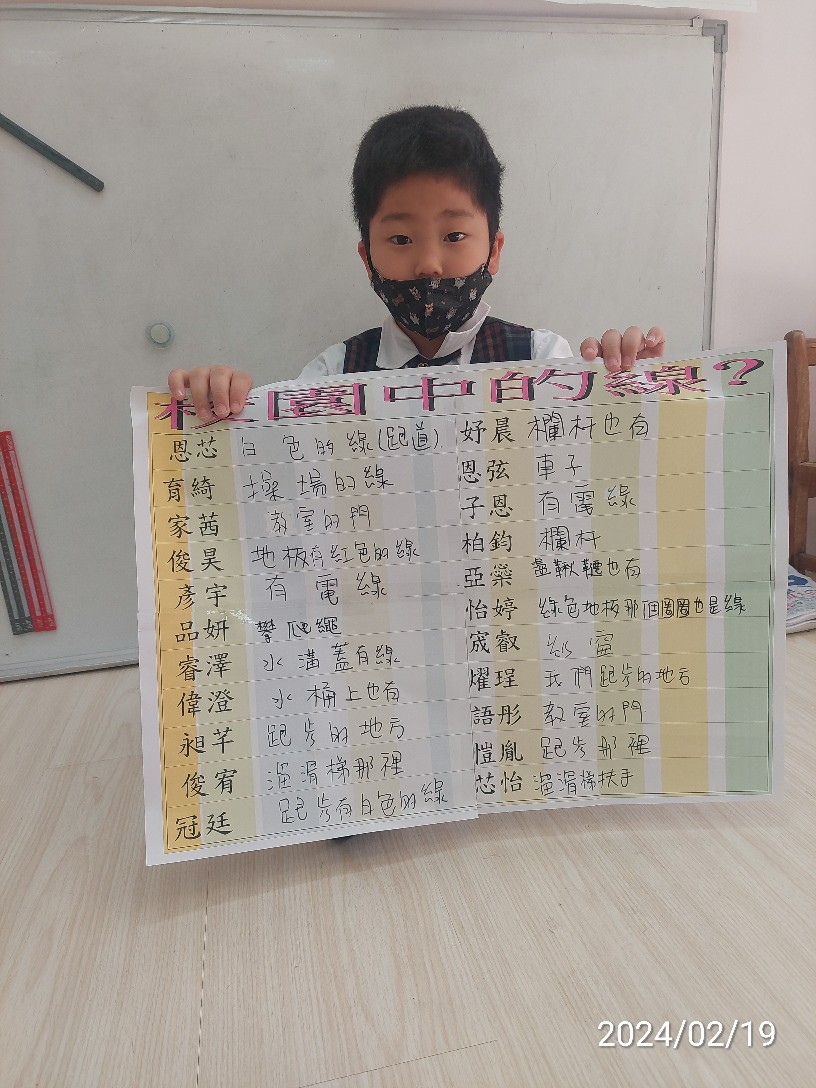 校園中的線?
恩芯 白色的線(跑道)
育綺 操場的線
家茜 教室的門
俊昊 地板有紅色的線
彥宇 有電線
品妍 攀爬繩
睿澤 水溝蓋有線
偉澄 水桶上也有
昶芊 跑步的地方
俊宥 溜滑梯那裡
冠廷 跑步有白色的線
妤晨 欄杆也有
恩弦 車子
子恩 有電線
柏鈞 欄杆
亞 盪鞦韆也有
怡婷 綠色地板那個圈圈也是線
宬叡 紗窗
燿珵 我們跑步的地方
語彤 教室的門
愷胤 跑步那裡
芯怡 溜滑梯扶手
2024/02/19